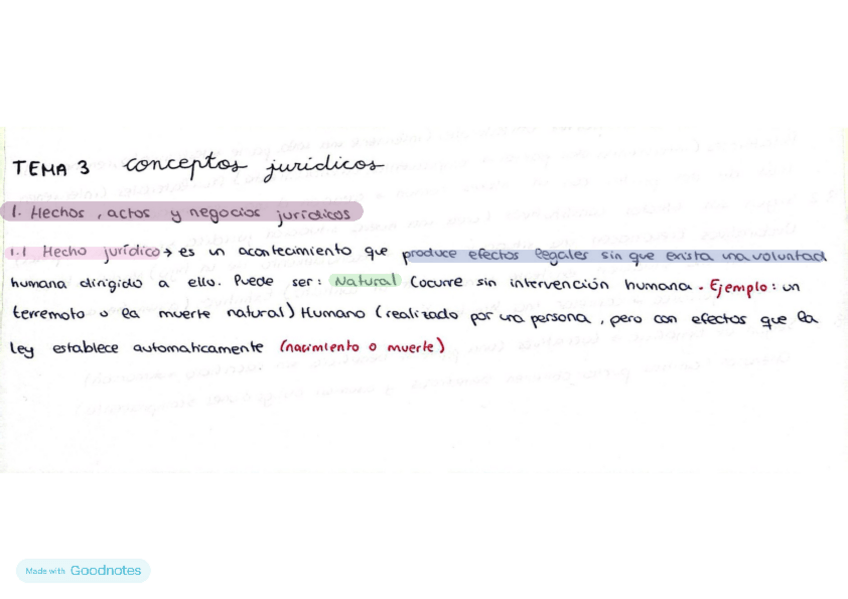 TEMA 3 conceptos jurídicos
1. Hechos, actos y negocios jurídicos
1.1 Hecho jurídico → es un acontecimiento que produce efectos legales sin que exista una voluntad
humana dirigido a ello. Puede ser: Natural (ocurre sin intervención humana. Ejemplo: un
terremoto o la muerte natural) Humano (realizado por una persona, pero con efectos que la
ley establece automaticamente (nacimiento o muerte)
Made with Goodnotes